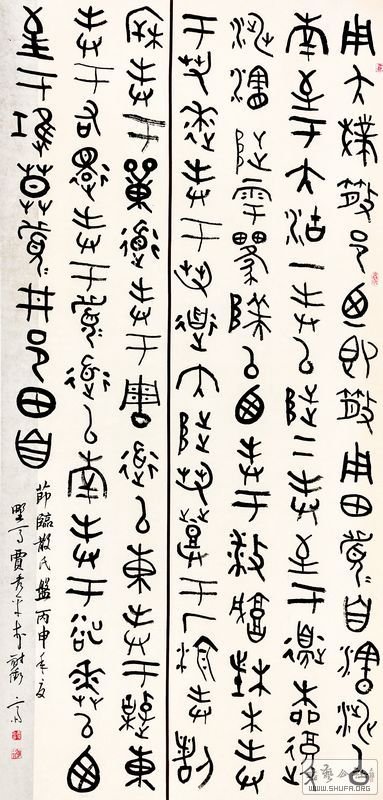 用夨撲散邑乃即散用田眉自瀗涉以
南至于大沽一封以陟二封至于邊柳復
涉瀗陟雩陟以西封于播城楮木封
于芻逨封于芻道內陟芻登于厂湶封割
封于道封于周道以東封于東
封于右還封于眉道以南封于逨以西
至于堆莫眉井邑田自
節臨散氏盤丙申年夏
賈秀
WWW.SHUFA.ORG